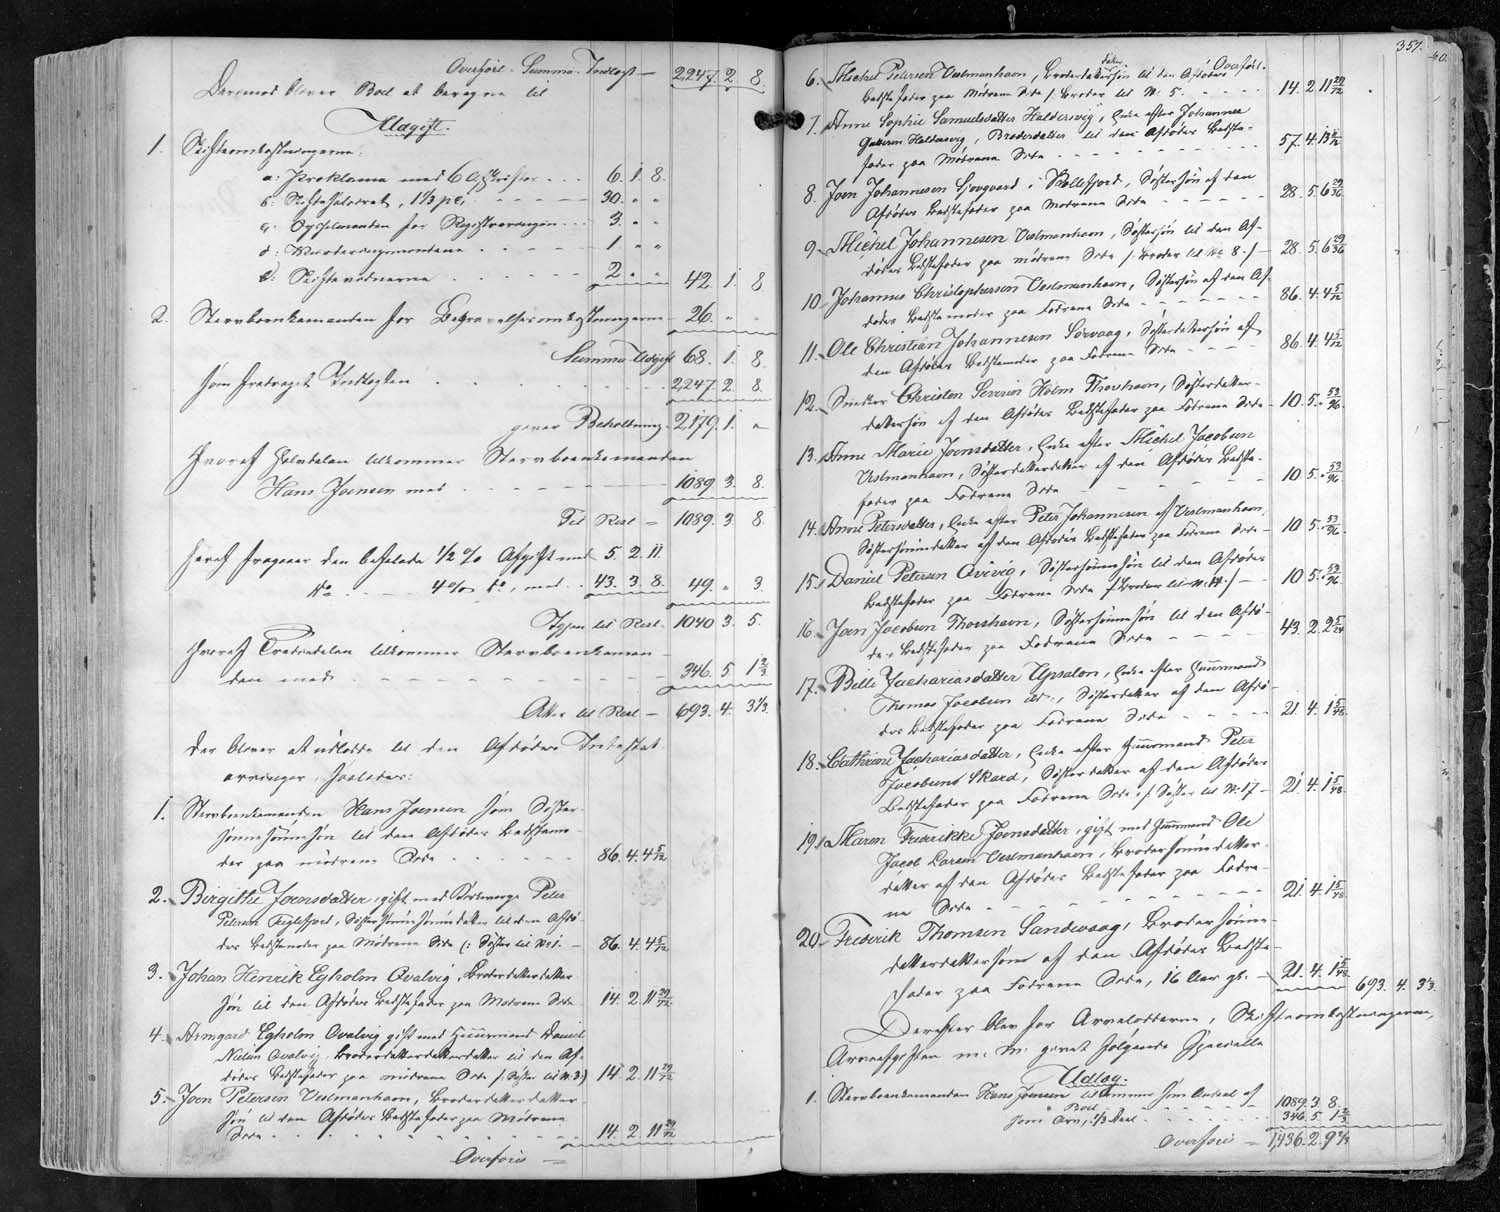 Overført. Summa Indtægt — 2247. 2. 8.
Derimod bliver Boet at beregne til
Udgift.
1. Skifteomkostningerne:
a: Proklama med 6 Afskrifter 6. 1. 8.
b: Skiftesalairet, 1 1/3 pCt 30. " "
c: Sysselmanden for Registreringen 3. " "
d: Vurderingsmændene 1. " "
e: Skiftevidnerne 2. " " 42. 1. 8
2. Stervboenkemanden for Begravelsesomkostningerne 26. " "
Summa Udgift 68. 1. 8.
som fradraget Indtægten 2247. 2. 8
giver Beholdning 2179. 1. "
hvoraf Halvdelen tilkommer Stervboenkemanden
Hans Joensen med 1089. 3. 8.
Til Rest — 1089. 3. 8.
heraf fragaaer den befalede 1/2 % Afgift med 5. 2. 11.
do 4 % do, med 43. 3. 8. 49. " 3.
Igjen til Rest 1040. 3. 5.
hvoraf Trediedelen tilkommer Stervboenkeman-
den med 346. 5 1 2/3
Atter til Rest — 693. 4. 3 1/3.
der bliver at udlodde til den Afdødes Intestat
arvinger, saaledes:
1. Stervboenkemanden Hans Joensen som Søster-
sønnesønnesøn til den Afdødes Bedstemo-
der paa mødrene Side 86. 4. 4 5/12
2. Birgitte Joensdatter, gift med Peter
Petersen Fuglefjord, Søstersønnesønnedatter til den Afdø-
des Bedstemoder paa Mødrene Side (: Søster til No 1. 86. 4. 4 5/12
3. Johan Henrik Egholm Qvalvig, Broderdatterdatter
søn til den Afdødes Bedstefader paa Mødrene Side 14. 2. 11 29/72
4. Armgard Egholm Qvalvig gift med Huusmand Daniel
Qvalvig, Broderdatterdatterdatter til den Af-
dødes Bedstefader paa mødrene Side (: Søster til No 3:) 14. 2. 11 29/72
5. Joen Petersen Vestmanhavn, Broderdatterdatter-
søn til den Afdødes Bedstefader paa Mødrene
Side 14. 2. 11 29/72
Overføres —
357.
Overført.
6. Michel Petersen Vestmanhavn, Broderdatterdattersøn til den Afdødes
Bedstefader paa Mødrene Side (: Broder til No 5. 14. 2. 11 29/72
7. Anne Sophie Samuelsdatter Haldersvig, Enke efter Johannes
Guttesen Haldersvig, Broderdatter til den Afdødes Bedste-
fader paa Mødrene Side 57. 4. 13
8. Joen Johannesen Sjovgaard i Kollefjord, Søstersøn af den
Afdødes Bedstefader paa Mødrene Side 28. 5. 6 29/36
9. Michel Johannesen Vestmanhavn, Søstersøn til den Af-
dødes Bedstefader paa mødrene Side (: Broder til No 8. :) — 28. 5. 6 29/36
10. Johannes Christophersen Vestmanhavn, Søstersøn af den Af-
dødes Bedstemoder paa Fædrene Side 86. 4. 4 5/12
11. Ole Christian Johannesen Sørvaag, Søsterdattersøn af
den Afdødes Bedstemoder paa Fædrene Side 86. 4. 4 5/12
12. Snedker Christen Severin Holm Thorshavn, Søsterdatter-
dattersøn af den Afdødes Bedstefader paa Fædrene Side 10. 5. " 53/96.
13. Anne Marie Joensdatter, Enke efter Michel Jacobsen
Vestmanhavn, Søsterdatterdatter af den Afdødes Bedste-
fader paa Fædrene Side 10. 5. " 53/96.
14. Anne Petersdatter, Enke efter Peter Johannesen af Vestmanhavn,
Søstersønnedatter af den Afdødes Bedstefader paa Fædrene Side — 10. 5. " 53/96.
15. Daniel Petersen Qvivig, Søstersønnesøn til den Afdødes
Bedstefader paa Fædrene Side (: Broder til No 14. :) — 10. 5. " 53/96
16. Joen Jacobsen Thorshavn, Søstersønnesøn til den Afdø-
des Bedstefader paa Fædrene Side 43. 2. 2 5/24
17. Bille Zachariasdatter Upsalon, Enke efter Huusmand
Thomas Jacobsen ibd., Søsterdatter af den Afdø-
des Bedstefader paa Fædrene Side 21. 4. 1 5/48.
18. Cathrine Zachariasdatter, Enke efter Huusmand Peter
Jacobsens Skard, Søsterdatter af den Afdødes
Bedstefader paa Fædrene Side (: Søster til No 17 — 21. 4. 1 5/48.
19. Maren Frederikke Joensdatter, gift med Huusmand Ole
Jacob Larsen Vestmanhavn, Brodersønnedatter-
datter af den Afdødes Bedstefader paa Fædre-
ne Side 21. 4. 1 5/48
20. Frederik Thomsen Sandevaag, Brodersønne-
datterdattersøn af den Afdødes Bedste-
fader paa Fædrene Side, 16 Aar gl. — 21. 4. 1 5/48. 693. 4. 3 1/3.
Derefter blev for Arvelodderne, Skifteomkostningerne,
Arveafgiften m. m. gjort følgende specielle
Udlæg.
1. Stervboenkemanden Hans Joensen tilkommer som Andeel af
Boet 1089. 3. 8.
som Arv, 1/3 Deel 346. 5 1 2/3
Overføres — 1,436. 2. 9 2/3